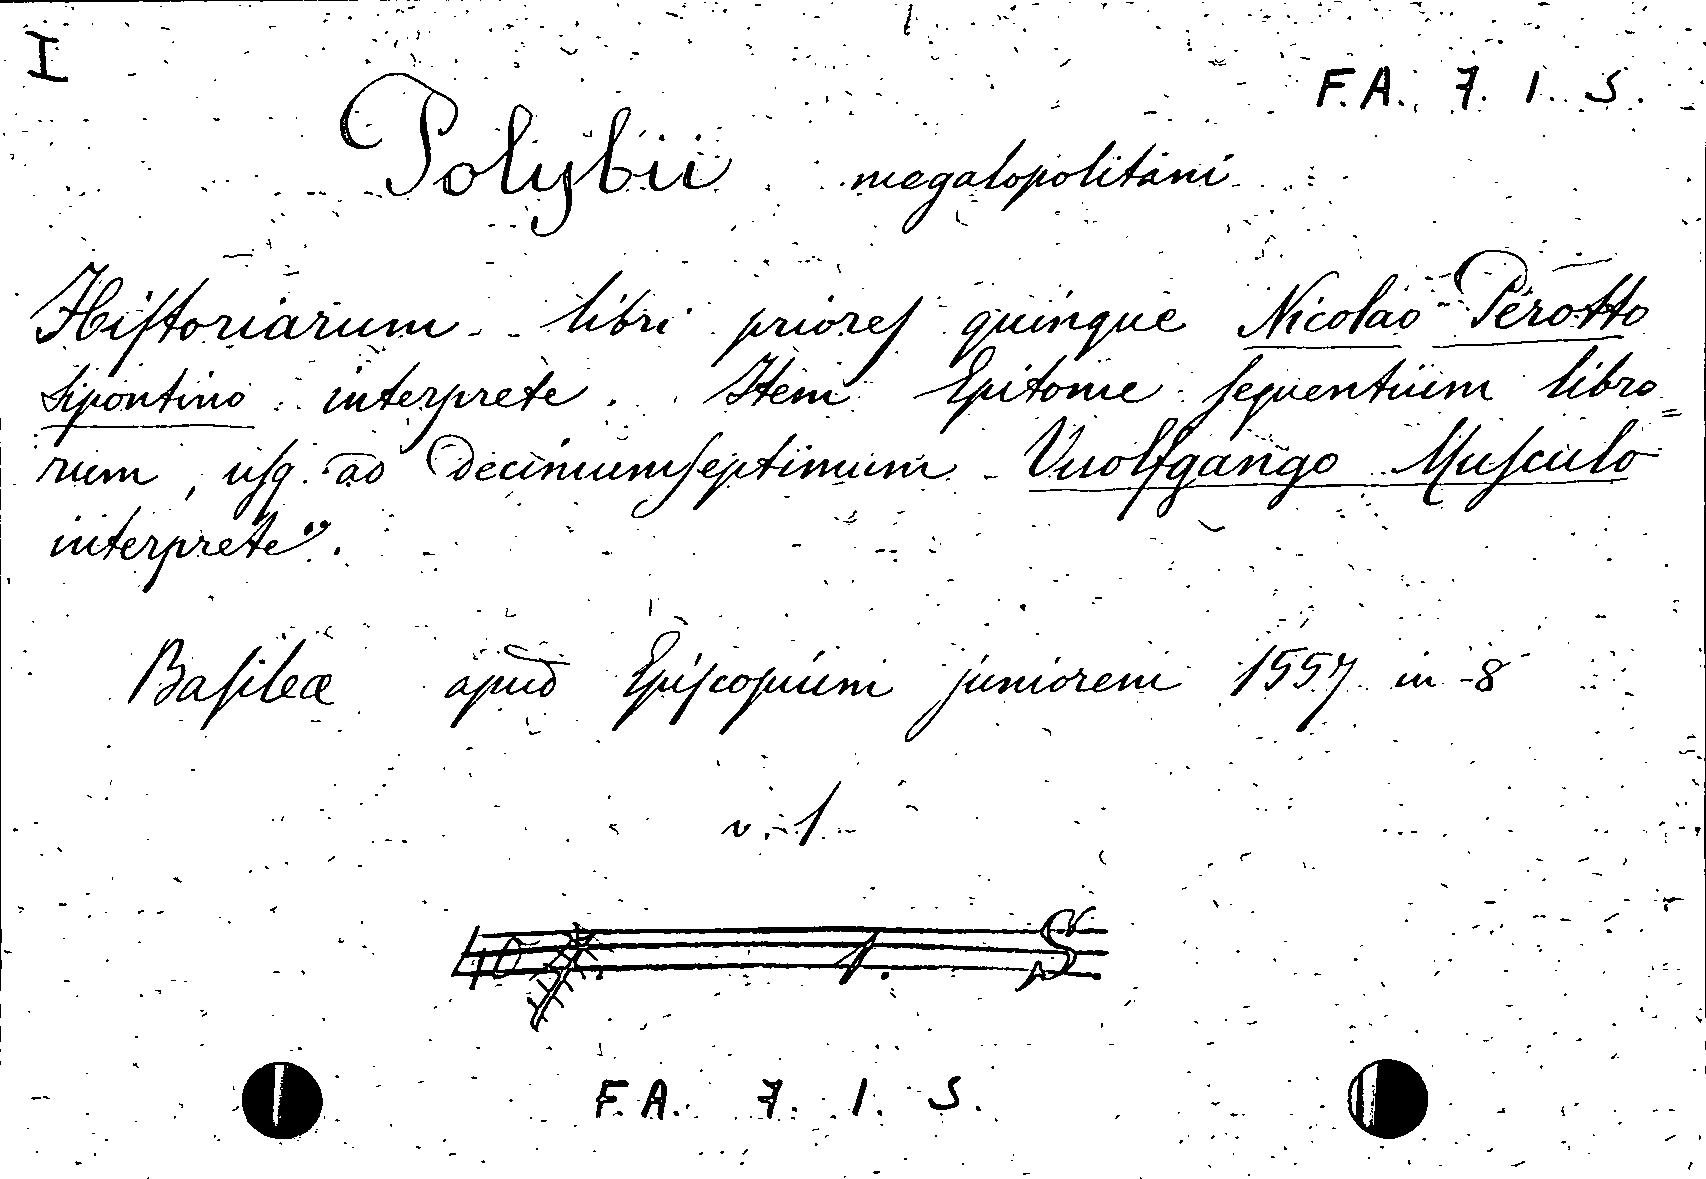 I
F.A. 7. 1. S.
Polybii megalopolitani
Hiſtoriarum libri prioreſ quinque Nicolao Perotto
Sipontino interprete. Item Epitome ſequentium libro=
rum, uſq. ad decimumſeptimum Vuolfgango Muſculo
interprete".
Baſileæ apud Epiſcopium juniorem 1557 in 8
v. 1
1. S
F.A. 7. 1. S.